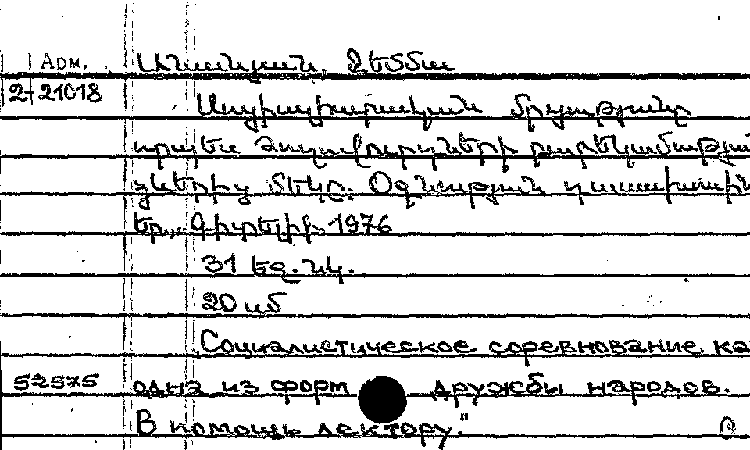 Адм. Անանյան, Ջեմմա
2-21018
Սոցիալիստական մրցությունը
որպես ժողովուրդների բարեկամությա
ձևերից մեկը. Օգնություն դասախոսին
Եր., Գիտելիք, 1976
31 եզ. նկ.
20 սմ
Социалистическое соревнование ка
52575 одна из форм дружбы народов.
В помощь лектору."